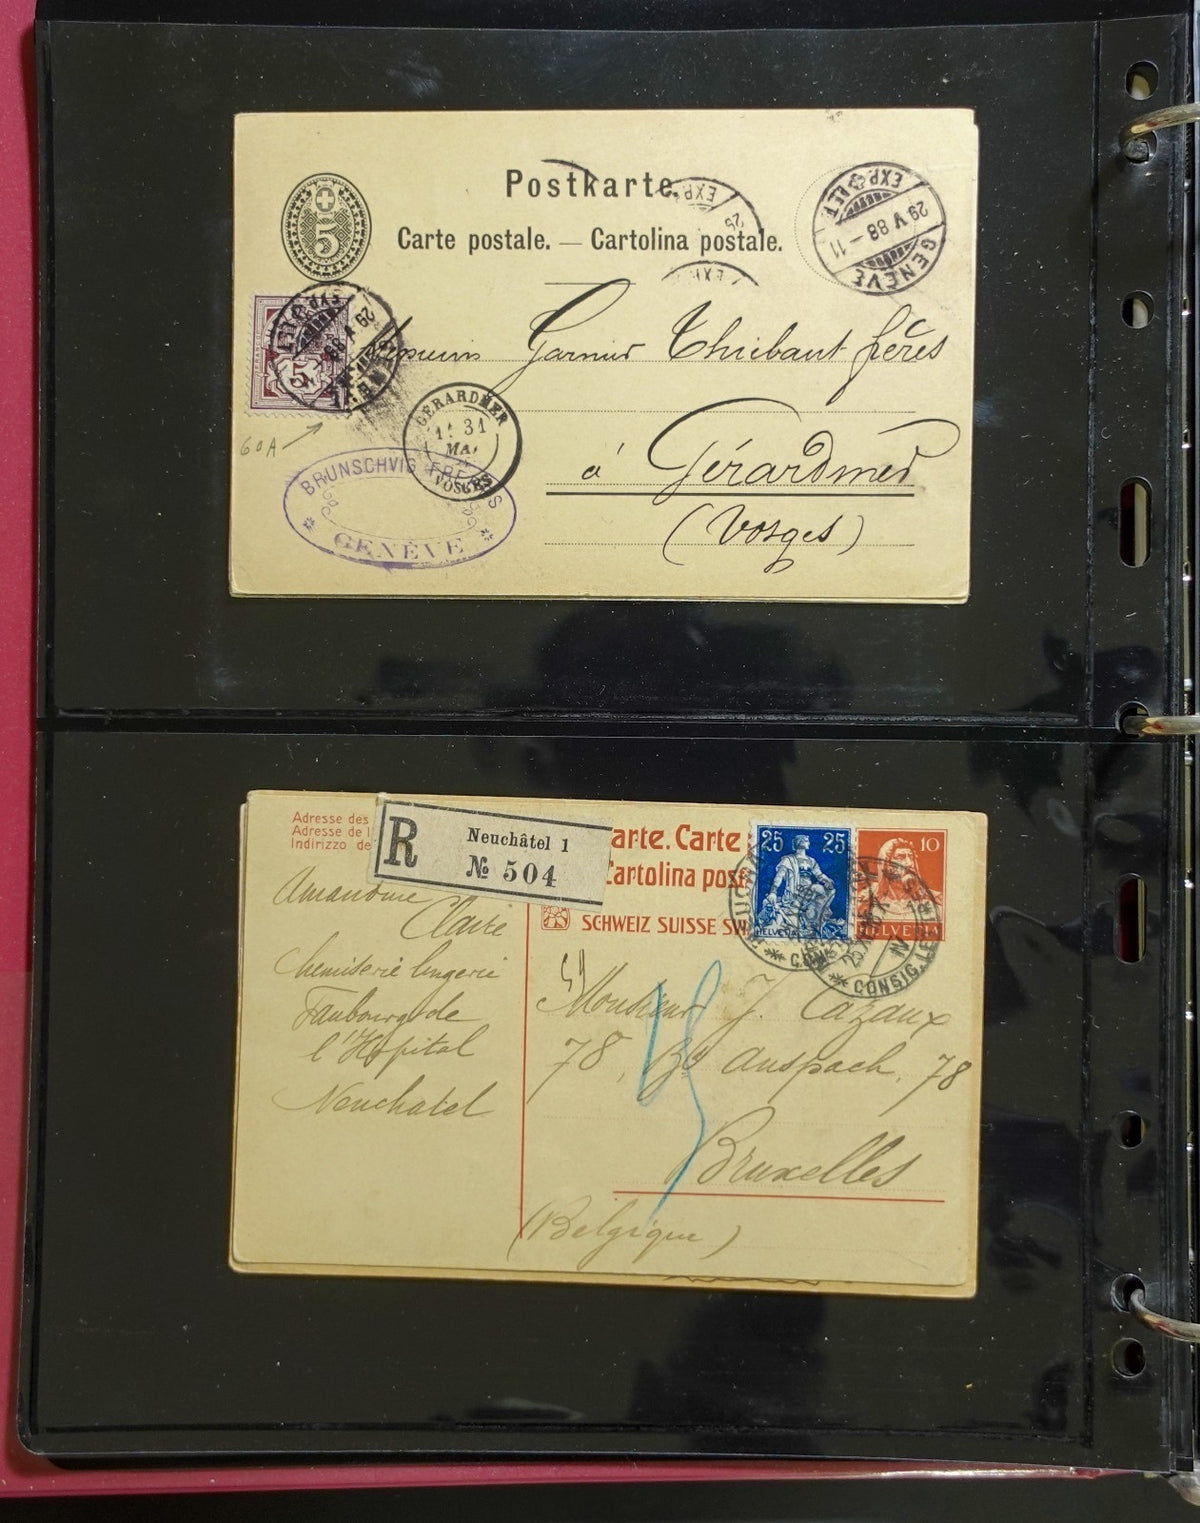 Postkarte.
Carte postale. — Cartolina postale.
5
GENÈVE
29 V 88 - 11
EXP. LET.
EXP.
29
5
29 V 88
EXP. LET.
Garnier Thiébaut frères
à Gérardmer
(Vosges)
60A
GÉRARDMER
31
MAI
VOSGES
BRUNSCHVIG FRERES
GENÈVE
Adresse des
Adresse de l
Indirizzo de
R
Neuchâtel 1
№ 504
arte. Carte
Cartolina post
SCHWEIZ SUISSE SV
25 25
HELVETIA
10
HELVETIA
CONSIG. LETTR.
Amandine
Claire
Chemiserie lingerie
Faubourg de
l'Hôpital
Neuchatel
Monsieur J. Cazaux
78, Bd Anspach, 78
Bruxelles
(Belgique)